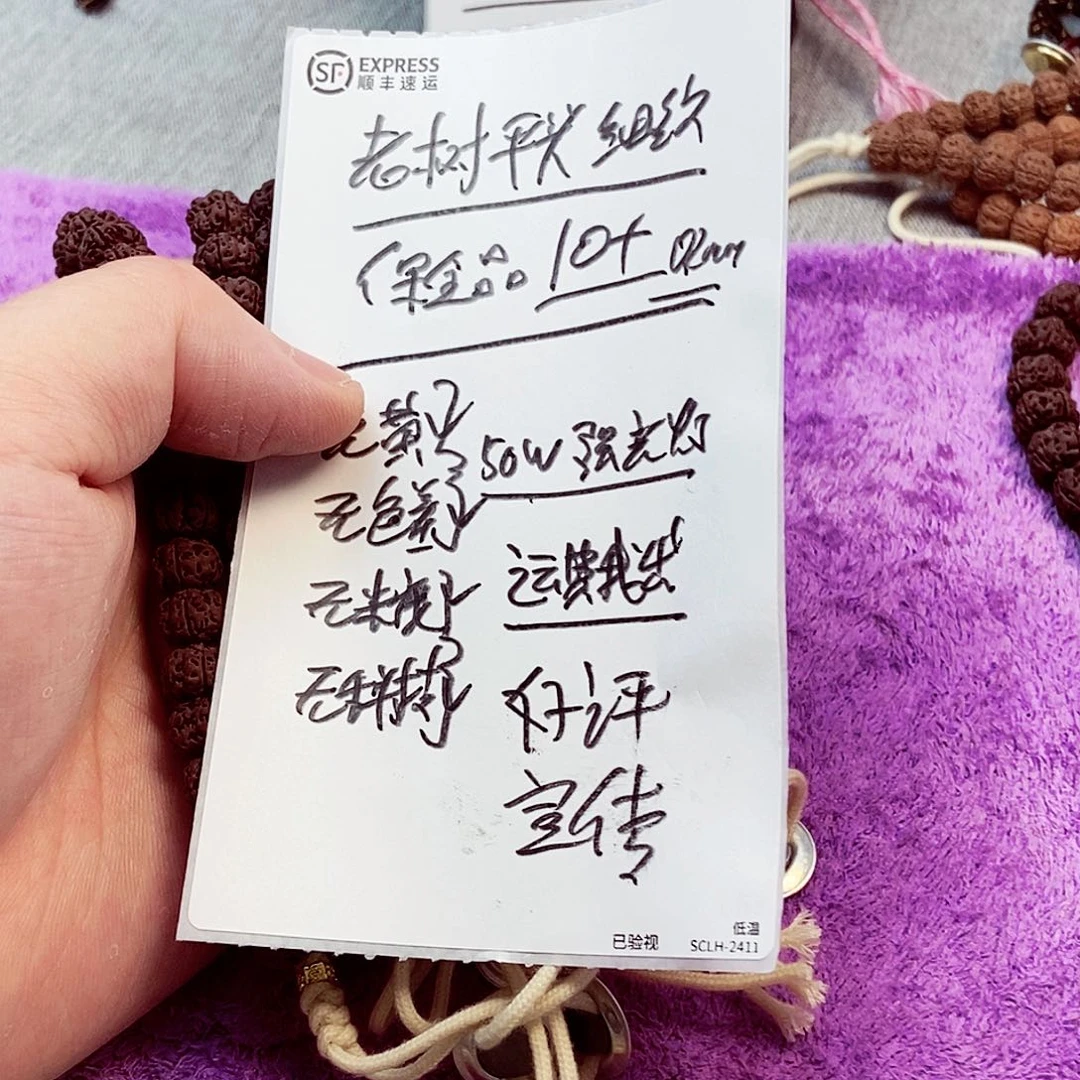 SF EXPRESS
顺丰速运
老树平头 组纹
保全品 10+ 02mm
无黄了
50W 强光灯
无色差了
运费我出
无米糠了
好评
宣传
已验视
低温
SCLH-2411